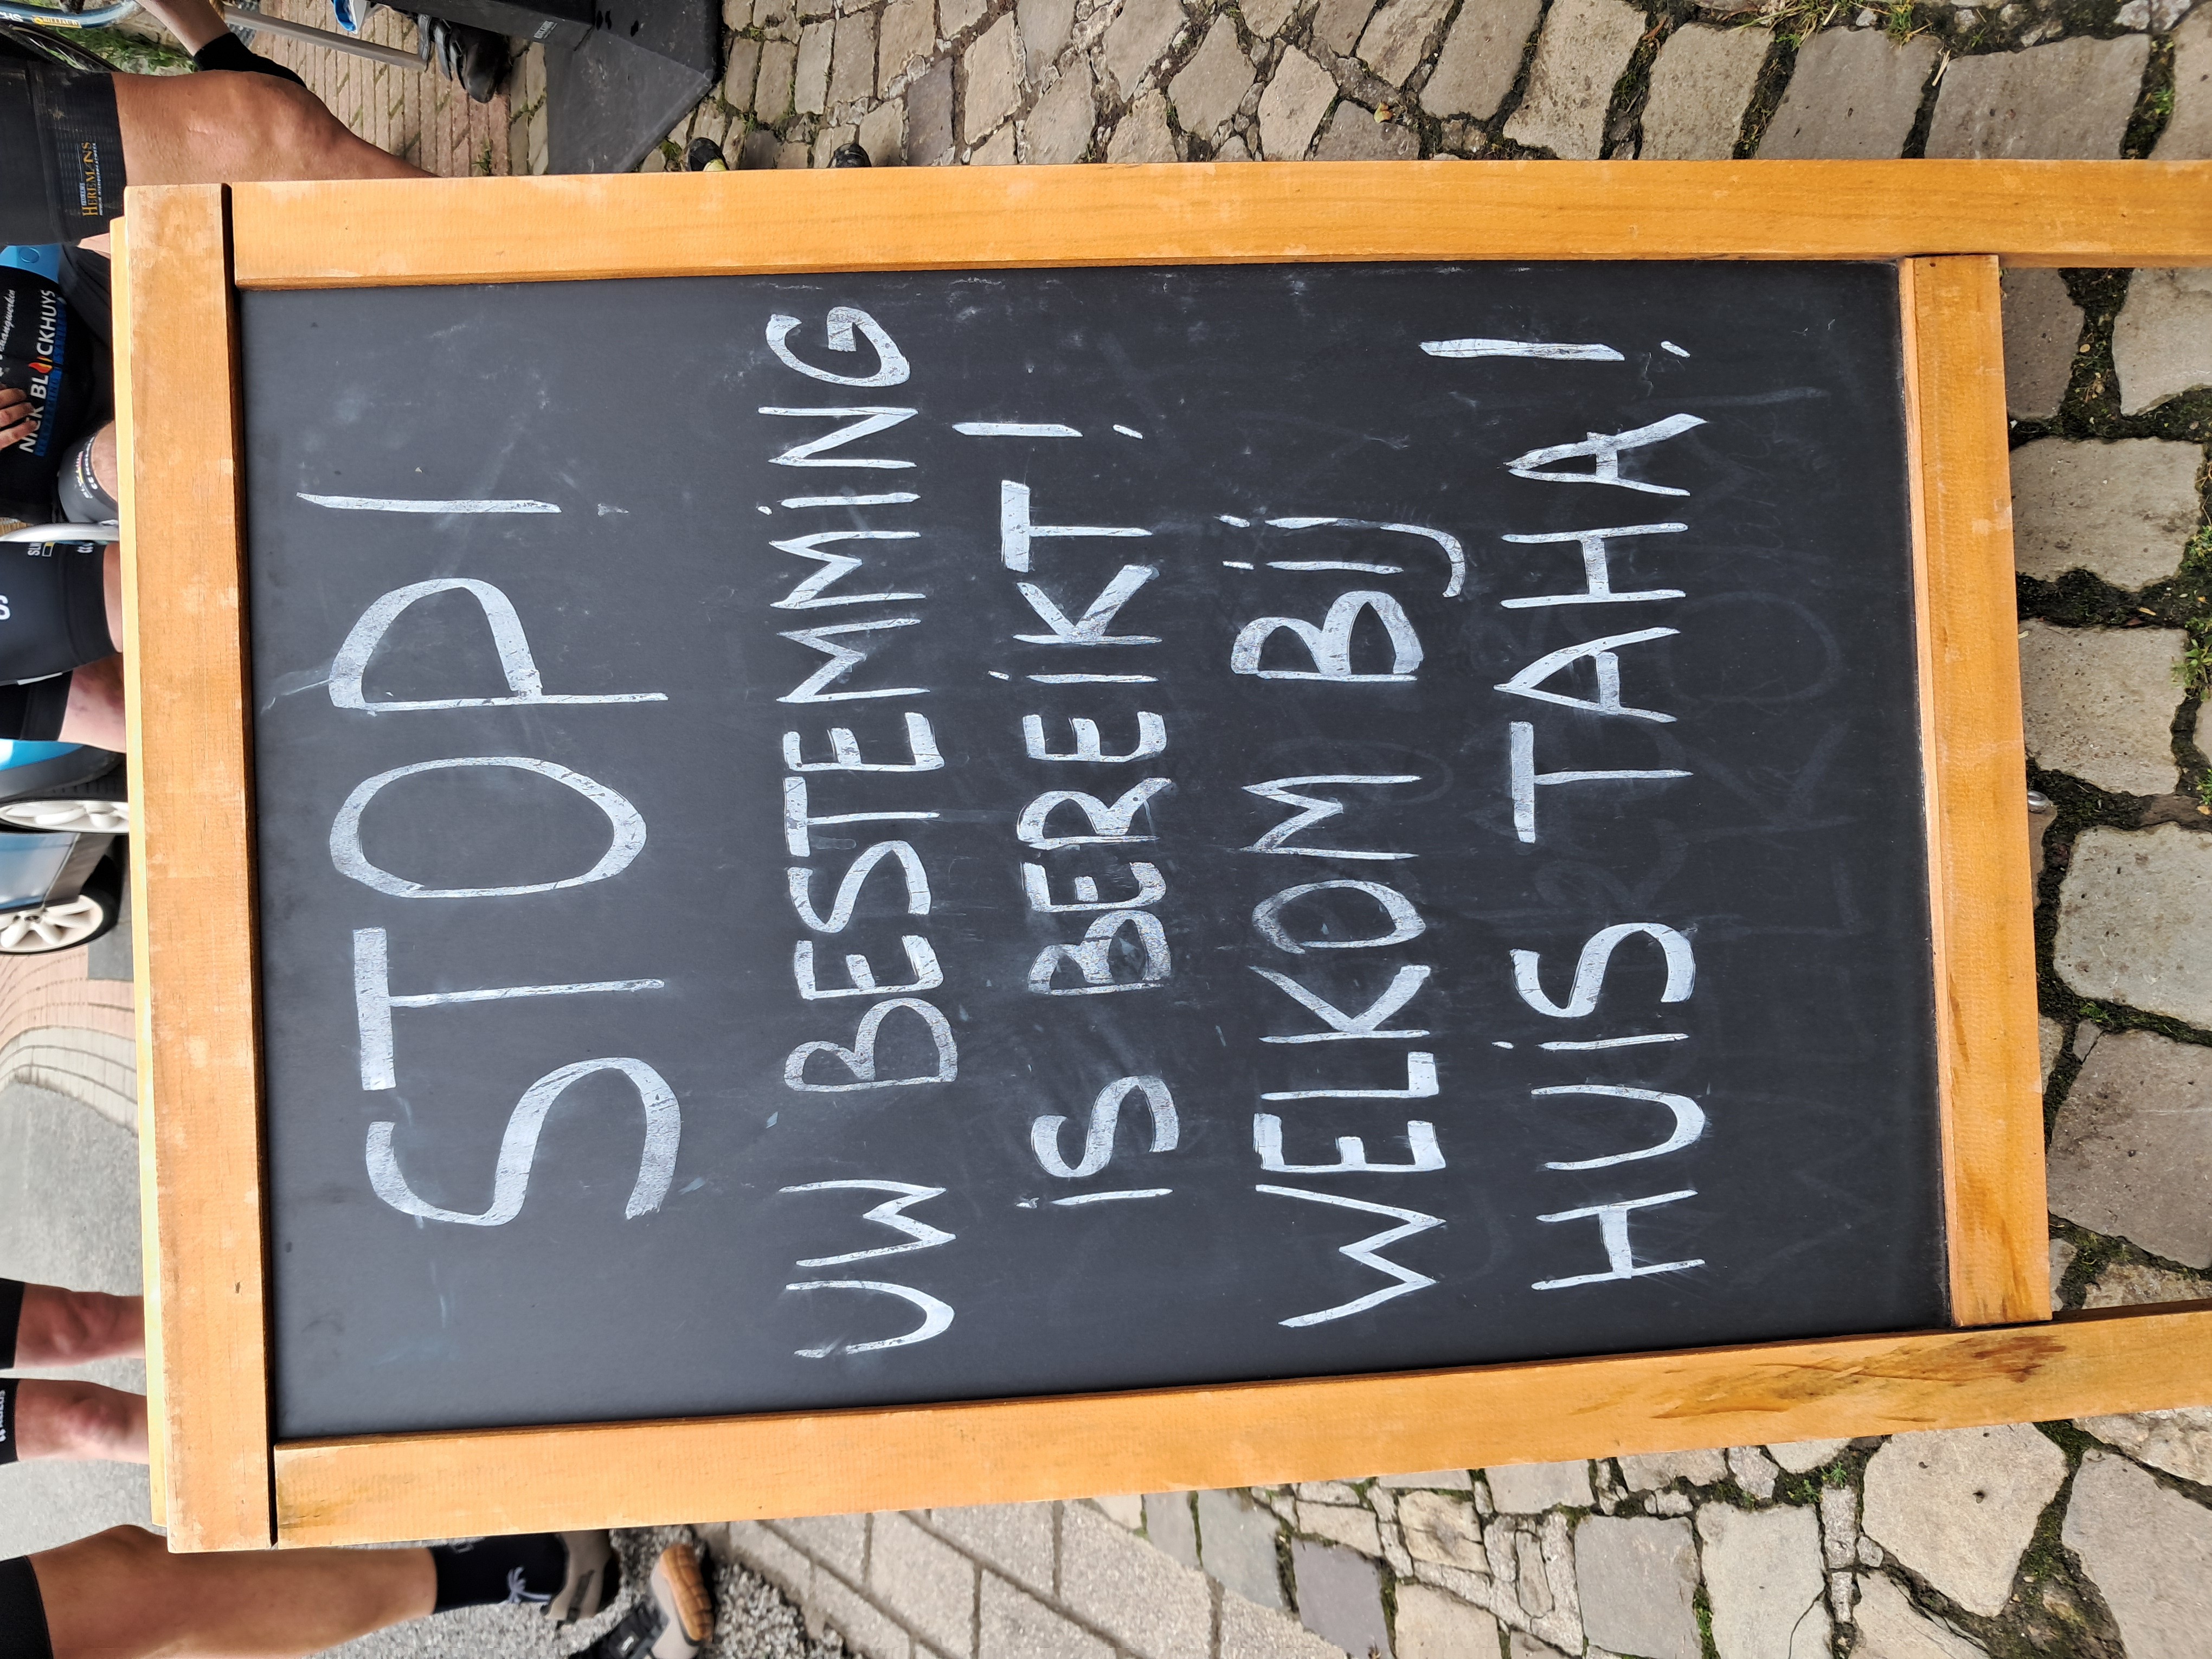 STOP!
UW BESTEMMING
IS BEREIKT!
WELKOM BIJ
HUIS TAHA!
HEREMANS
NICK BLOCKHUYS